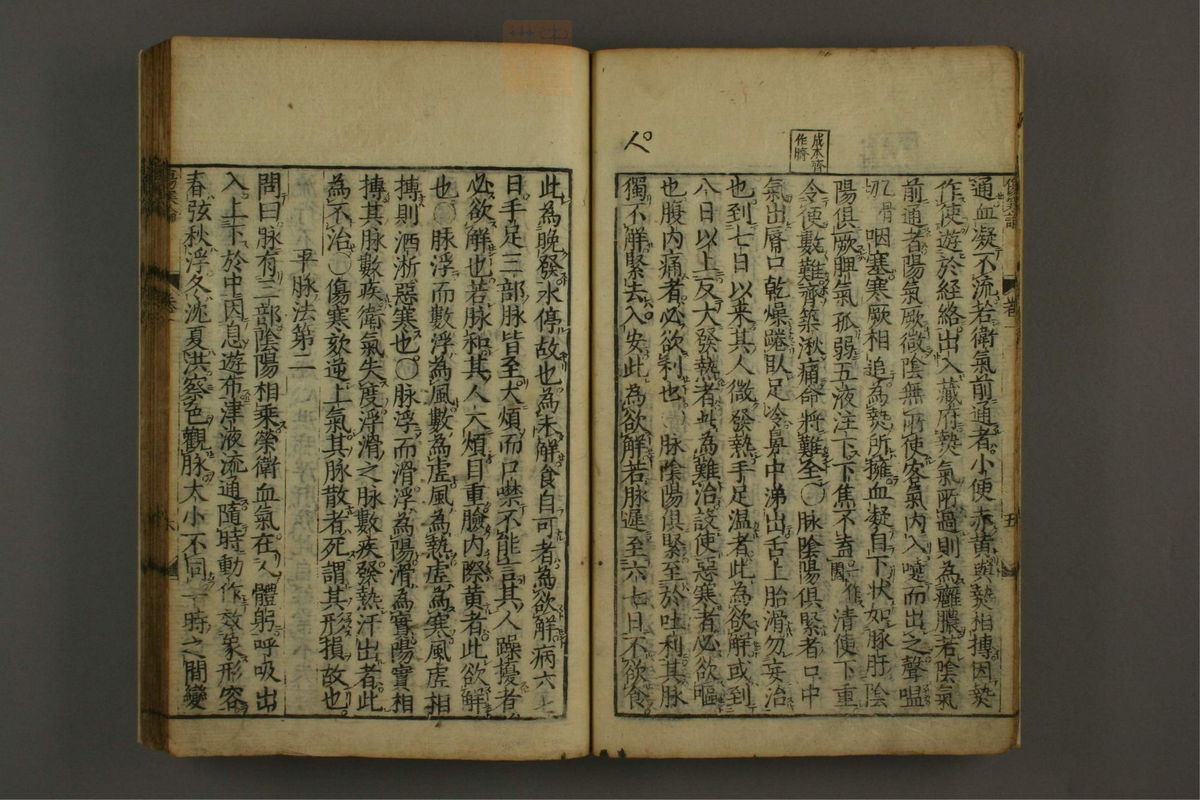 成本齊
作臍
通血凝不流若衛氣前通者小便赤黃與熱相搏因熱
作使遊於經絡出入藏府熱氣所過則為癰膿若陰氣
前通者陽氣厥微陰無所使客氣內入嚏而出之聲嗢
咽塞寒厥相追為熱所擁血凝自下狀如豚肝陰
陽俱厥脾氣孤弱五液注下下焦不盍 清便下重
令便數難齊築湫痛命將難至〇脉陰陽俱緊者口中
氣出唇口乾燥踡臥足冷鼻中涕出舌上胎滑勿妄治
也到七日以来其人微發熱手足温者此為欲解或到
八日以上反大發熱者此為難治設使惡寒者必欲嘔
也腹內痛者必欲利也 脉陰陽俱緊至於吐利其脉
獨不解緊去入安此為欲解若脉遲至六七日不欲食
人
此為晚發水停故也為未解食自可者為欲解病六七
日手足三部脉皆至大煩而口噤不能言其人躁擾者
必欲解也若脉和其人大煩目重瞼內際黃者此欲解
也〇脉浮而數浮為風數為虚風為熱虚為寒風虚相
搏則洒淅惡寒也〇脉浮而滑浮為陽滑為實陽實相
搏其脉數疾衛氣失度浮滑之脉數疾發熱汗出者此
為不治〇傷寒欬逆上氣其脉散者死謂其形損故也
平脉法第二
問曰脉有三部陰陽相乘榮衛血氣在人體躬呼吸出
入上下於中因息遊布津液流通隨時動作效象形容
春弦秋浮冬沈夏洪察色觀脉大小不同一時之間變